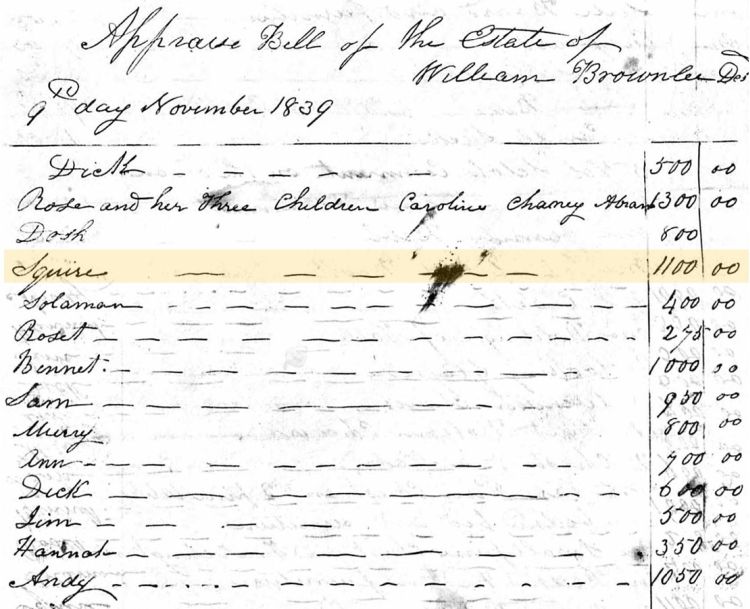 Appraise Bill of the Estate of
William Brownlee Des
9th day November 1839
Dick 500 00
Rose and her three Children Caroline Chaney Abram 1300 00
Dosh 800
Squire 1100 00
Solaman 400 00
Roset 275 00
Bennet 1000 00
Sam 950 00
Merry 800 00
Ann 700 00
Dick 600 00
Jim 500 00
Hannah 350 00
Andy 1050 00